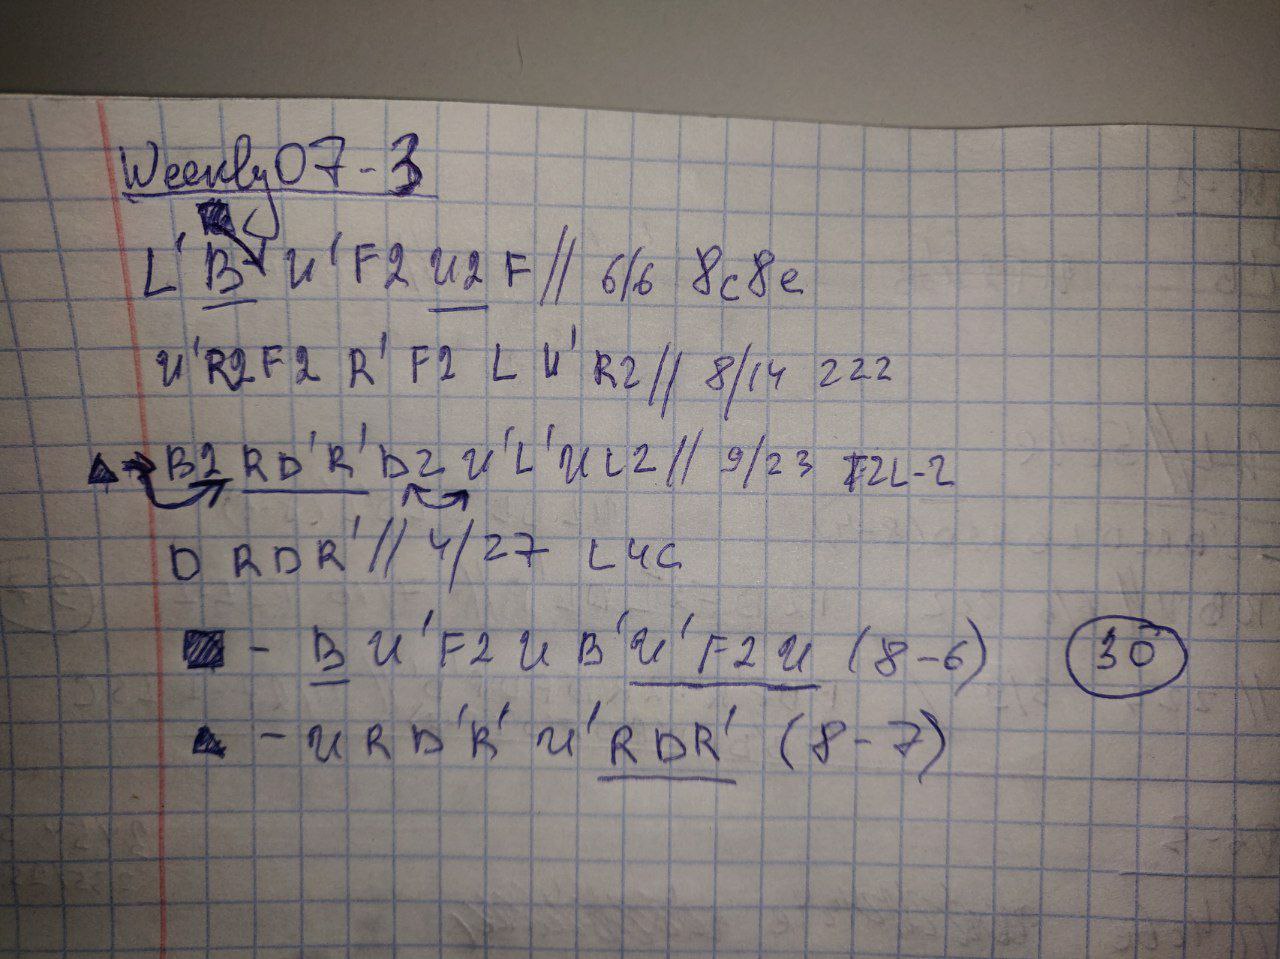 Weekly 07-3
L' B U' F2 U2 F // 6/6 8c8e
U' R2 F2 R' F2 L U' R2 // 8/14 222
▲ B2 R D' R' D2 U' L' U L2 // 9/23 F2L-2
D R D R' // 4/27 L4C
■ - B U' F2 U B' U' F2 U (8-6) 30
▲ - U R D' R' U' R D R' (8-7)